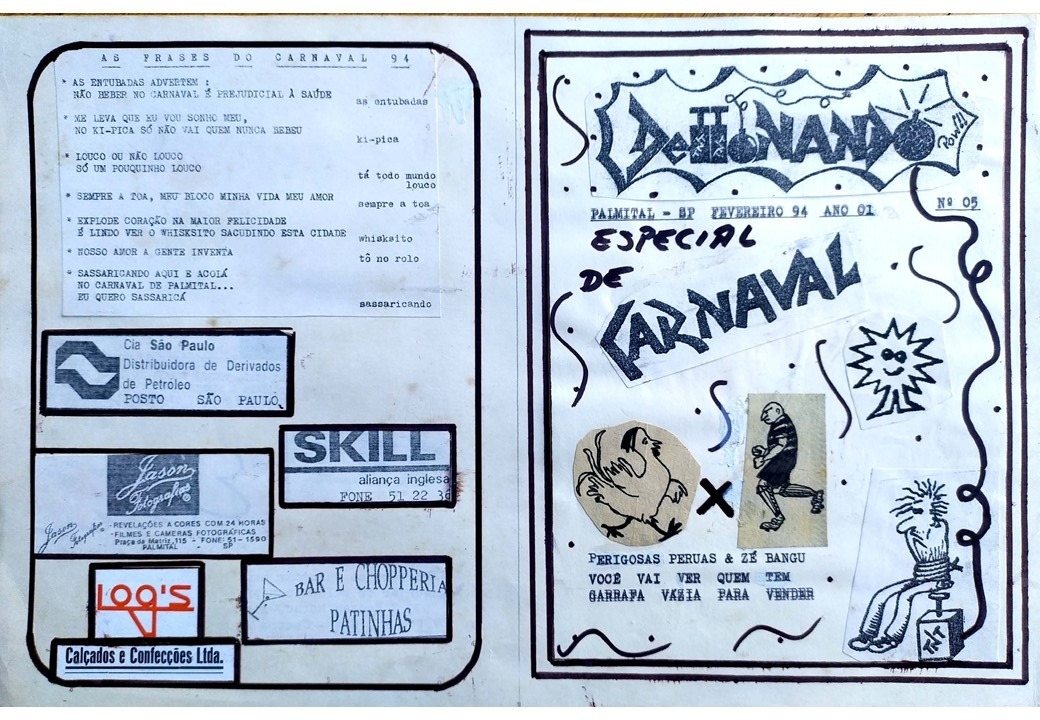 AS FRASES DO CARNAVAL 94
* AS ENTUBADAS ADVERTEM :
NÃO BEBER NO CARNAVAL É PREJUDICIAL À SAÚDE
as entubadas
* ME LEVA QUE EU VOU SONHO MEU,
NO KI-PICA SÓ NÃO VAI QUEM NUNCA BEBEU
ki-pica
* LOUCO OU NÃO LOUCO
SÓ UM POUQUINHO LOUCO
tá todo mundo
louco
* SEMPRE A TOA, MEU BLOCO MINHA VIDA MEU AMOR
sempre a toa
* EXPLODE CORAÇÃO NA MAIOR FELICIDADE
É LINDO VER O WHISKSITO SACUDINDO ESTA CIDADE
whisksito
* NOSSO AMOR A GENTE INVENTA
tô no rolo
* SASSARICANDO AQUI E ACOLÁ
NO CARNAVAL DE PALMITAL...
EU QUERO SASSARICÁ
sassaricando
Cia São Paulo
Distribuidora de Derivados
de Petróleo
POSTO SÃO PAULO
SKILL
aliança inglesa
FONE 51 22 36
Jason
Fotografias
Jason
Fotografias
- REVELAÇÕES A CORES COM 24 HORAS
- FILMES E CAMERAS FOTOGRÁFICAS
Praça da Matriz, 115 - FONE: 51-1590
PALMITAL SP
LOG'S
Calçados e Confecções Ltda.
BAR E CHOPPERIA
PATINHAS
DeTTONANDO
Pow!!!
PALMITAL - SP FEVEREIRO 94 ANO 01
Nº 05
ESPECIAL
DE
CARNAVAL
X
PERIGOSAS PERUAS & ZÉ BANGU
VOCÊ VAI VER QUEM TEM
GARRAFA VAZIA PARA VENDER